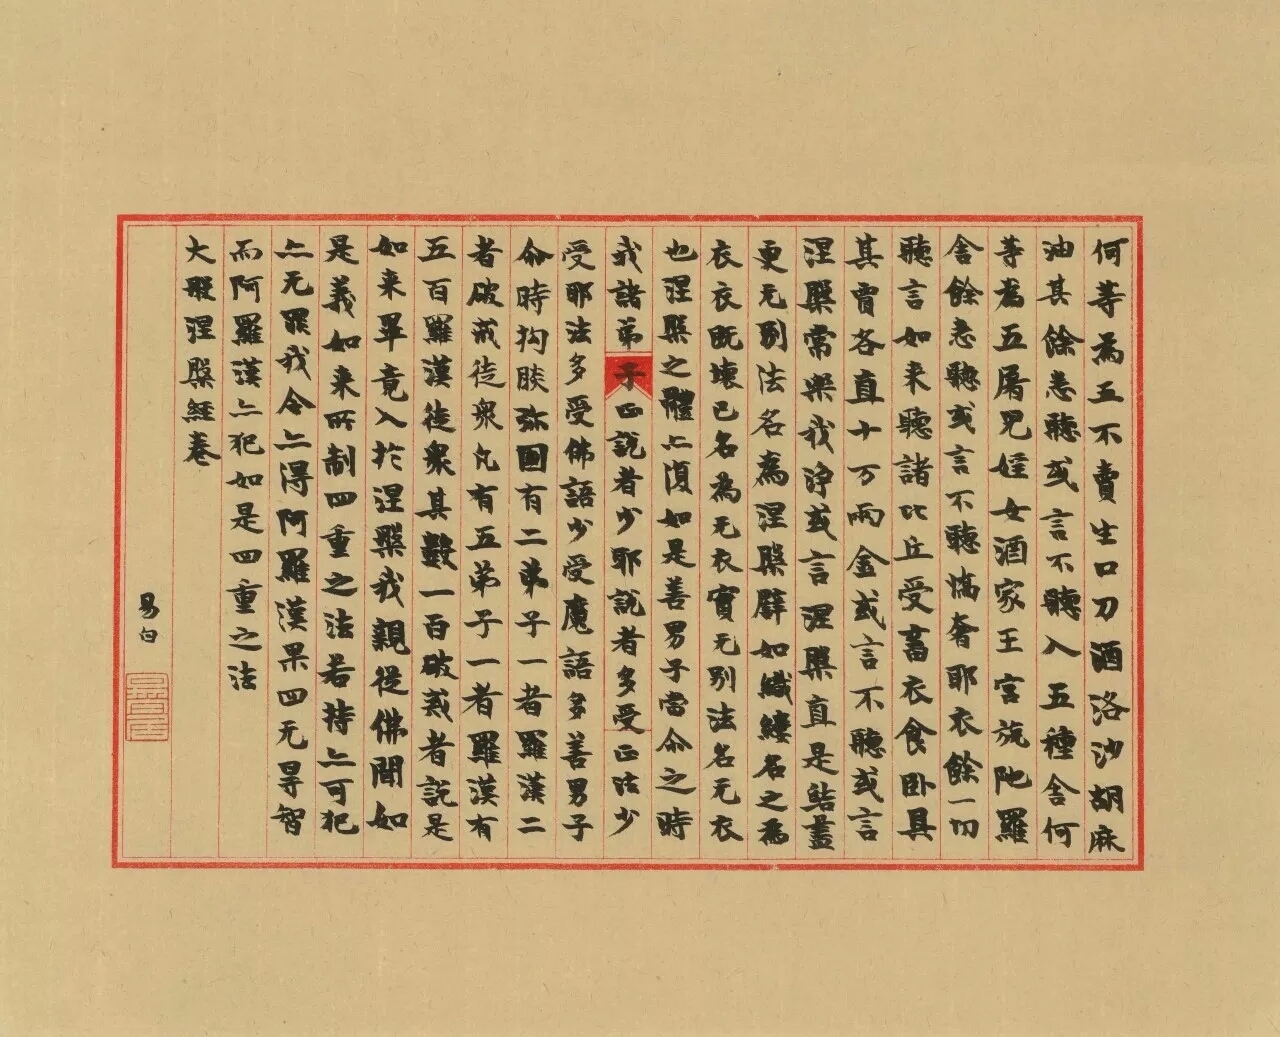 何等為五不賣生口刀酒洛沙胡麻
油其餘悉聽或言不聽入五種舍何
等為五屠兒婬女酒家王宮旃陁羅
舍餘悉聽或言不聽憍奢耶衣餘一切
聽言如来聽諸比丘受畜衣食卧具
其賈各直十万兩金或言不聽或言
涅槃常樂我淨或言涅槃直是結盡
更无別法名為涅槃辟如織縷名之為
衣衣既壞已名為无衣實无別法名无衣
也涅槃之體亦復如是善男子當命之時
我諸弟子正說者少耶說者多受正法少
受耶法多受佛語少受魔語多善男子
命時拘睒弥國有二弟子一者羅漢二
者破戒徒衆凡有五弟子一者羅漢有
五百羅漢徒衆其數一百破戒者說是
如来畢竟入於涅槃我親從佛聞如
是義如来所制四重之法若持亦可犯
亦无罪我今亦得阿羅漢果四无㝵智
而阿羅漢亦犯如是四重之法
大般涅槃經卷
易白